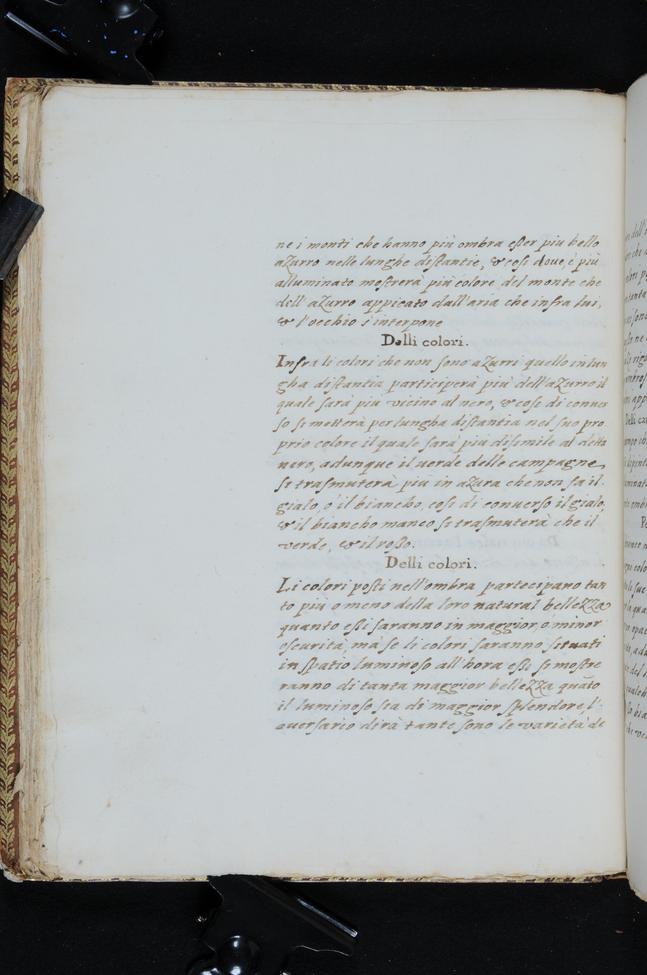 ne i monti che hanno più ombra esser piu bello
aZurro nelle lunghe distantie, & cosi dove, è piu
alluminato mostrerà più colore del monte che
dell'aZurro appicato dall'aria che infra lui,
& l'occhio s'interpone
Delli colori.
Infra li colori che non sono aZurri quello in lun
gha distantia parteciperà più dell'aZurro il
quale sarà piu vicino al nero, & cosi di conuer
so si metterà per lungha distantia nel suo pro
prio colore il quale sarà più disimile al detto
nero, adunque il uerde delle campagne
si trasmuterà più in aZura che non fa il
gialo, o' il biancho, cosi di conuerso il gialo,
& il biancho manco si trasmuterà che il
verde, & il rosso.
Delli colori.
Li colori posti nell'ombra partecipano tan
to più o meno della loro natural belleZZa
quanto essi saranno in maggior, o minor
oscurità, ma se li colori saranno situati
in spatio luminoso all'hora essi si mostre
ranno di tanta maggior belleZZa quāto
il luminoso sia di maggior splendore, l'
auersario dirà tante sono le varietà de